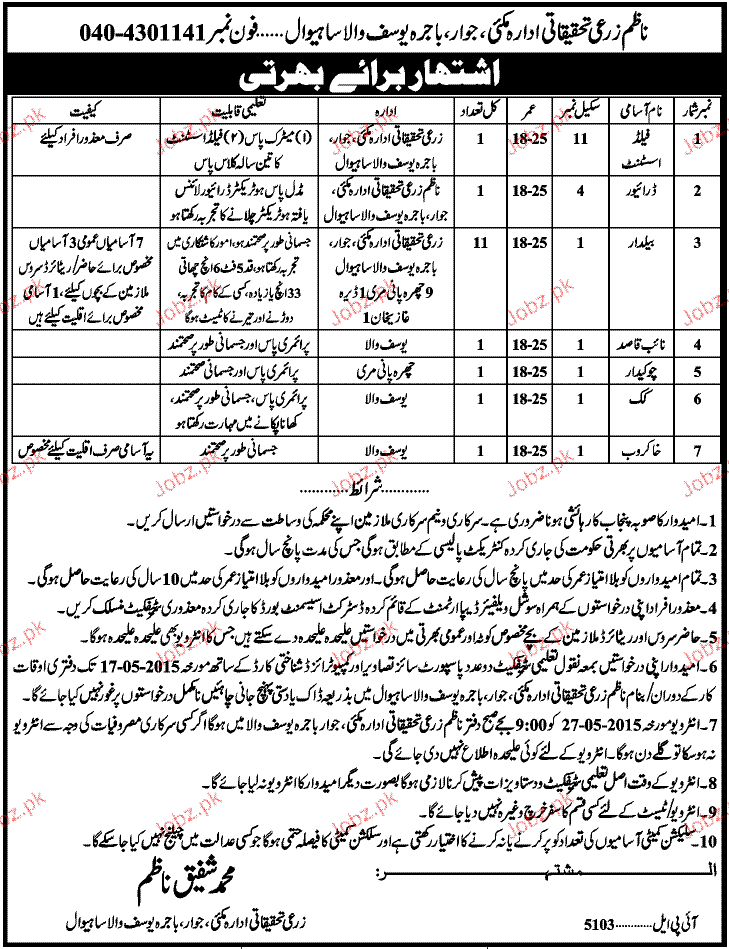 ناظم زرعی تحقیقاتی ادارہ مکئی، جوار، باجرہ یوسف والا ساہیوال......فون نمبر 4301141-040
اشتہار برائے بھرتی
نمبر شمار نام آسامی سکیل نمبر عمر کل تعداد ادارہ تعلیمی قابلیت کیفیت
1 فیلڈ اسسٹنٹ 11 18-25 1 زرعی تحقیقاتی ادارہ مکئی، جوار، باجرہ یوسف والا ساہیوال (۱) میٹرک پاس (۲) فیلڈ اسسٹنٹ کا تین سالہ کلاس پاس صرف معذور افراد کیلئے
2 ڈرائیور 4 18-25 1 ناظم زرعی تحقیقاتی ادارہ مکئی، جوار، باجرہ یوسف والا ساہیوال مڈل پاس ہو ٹریکٹر ڈرائیور لائسنس یافتہ ہو ٹریکٹر چلانے کا تجربہ رکھتا ہو
3 بیلدار 1 18-25 11 زرعی تحقیقاتی ادارہ مکئی، جوار، باجرہ یوسف والا ساہیوال 9 چھرہ پانی مری 1 ڈیرہ غازیخان 1 جسمانی طور پر صحتمند ہو، امور کاشتکاری میں تجربہ رکھتا ہو، قد 5 فٹ 6 انچ چھاتی 33 انچ یا زیادہ، کسی کے کام کا تجربہ، دوڑنے اور تیرنے کا ٹیسٹ ہوگا 7 آسامیاں عمومی 3 آسامیاں مخصوص برائے حاضر/ریٹائرڈ سروس ملازمین کے بچوں کیلئے، 1 آسامی مخصوص برائے اقلیت کیلئے ہیں
4 نائب قاصد 1 18-25 1 یوسف والا پرائمری پاس اور جسمانی طور پر صحتمند
5 چوکیدار 1 18-25 1 چھرہ پانی مری پرائمری پاس اور جسمانی صحتمند
6 کک 1 18-25 1 یوسف والا پرائمری پاس، جسمانی طور پر صحتمند، کھانا پکانے میں مہارت رکھتا ہو
7 خاکروب 1 18-25 1 یوسف والا جسمانی طور پر صحتمند یہ آسامی صرف اقلیت کیلئے مخصوص
............شرائط............
1۔ امیدوار کا صوبہ پنجاب کا رہائشی ہونا ضروری ہے۔ سرکاری و نیم سرکاری ملازمین اپنے محکمہ کی وساطت سے درخواستیں ارسال کریں۔
2۔ تمام آسامیوں پر بھرتی حکومت کی جاری کردہ کنٹریکٹ پالیسی کے مطابق ہوگی جس کی مدت پانچ سال ہوگی۔
3۔ تمام امیدواروں کو بلا امتیاز عمر کی حد میں پانچ سال کی رعایت حاصل ہوگی۔ اور معذور امیدواروں کو بلا امتیاز عمر کی حد میں 10 سال کی رعایت حاصل ہوگی۔
4۔ معذور افراد اپنی درخواستوں کے ہمراہ سوشل ویلفیئر ڈیپارٹمنٹ کے قائم کردہ ڈسٹرکٹ اسیسمنٹ بورڈ کا جاری کردہ معذوری سرٹیفکیٹ منسلک کریں۔
5۔ حاضر سروس اور ریٹائرڈ ملازمین کے بچے مخصوص کوٹہ اور عمومی بھرتی میں درخواستیں علیحدہ علیحدہ دے سکتے ہیں جس کا انٹرویو بھی علیحدہ علیحدہ ہوگا۔
6۔ امیدوار اپنی درخواستیں بمعہ نقول تعلیمی سرٹیفکیٹ دو عدد پاسپورٹ سائز تصاویر اور کمپیوٹرائزڈ شناختی کارڈ کے ساتھ مورخہ 17-05-2015 تک دفتری اوقات
کار کے دوران/بنام ناظم زرعی تحقیقاتی ادارہ مکئی، جوار، باجرہ یوسف والا ساہیوال میں بذریعہ ڈاک یا دستی پہنچ جانی چائیں نامکمل درخواستوں پر غور نہیں کیا جائے گا۔
7۔ انٹرویو مورخہ 27-05-2015 کو 9:00 بجے صبح دفتر ناظم زرعی تحقیقاتی ادارہ مکئی، جوار باجرہ یوسف والا میں ہوگا اگر کسی سرکاری مصروفیات کی وجہ سے انٹرویو
نہ ہوسکا تو اگلے دن ہوگا۔ انٹرویو کے لئے کوئی علیحدہ اطلاع نہیں دی جائے گی۔
8۔ انٹرویو کے وقت اصل تعلیمی سرٹیفکیٹ و دستاویزات پیش کرنا لازمی ہوگا بصورت دیگر امیدوار کا انٹرویو نہ لیا جائے گا۔
9۔ انٹرویو/ٹیسٹ کے لئے کسی قسم کا سفر خرچ وغیرہ نہیں دیا جائے گا۔
10۔ سلیکشن کمیٹی آسامیوں کی تعداد کو پُر کرنے یا نہ کرنے کا اختیار رکھتی ہے اور سلیکشن کمیٹی کا فیصلہ حتمی ہوگا جو کسی عدالت میں چیلنج نہیں کیا جاسکے گا۔
المشتہر:
محمد شفیق ناظم
زرعی تحقیقاتی ادارہ مکئی، جوار، باجرہ یوسف والا ساہیوال
آئی پی ایل..........5103
Jobz.pk